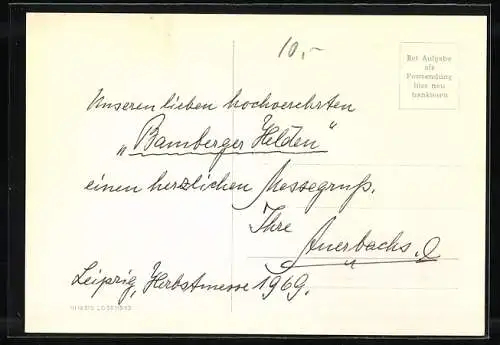 10,-
Bei Aufgabe
als
Postsendung
hier neu
frankieren
Unseren lieben hochverehrten
„Bamberger Helden“
einen herzlichen Messegruß.
Ihre
Auerbachs.
Leipzig, Herbstmesse 1969.